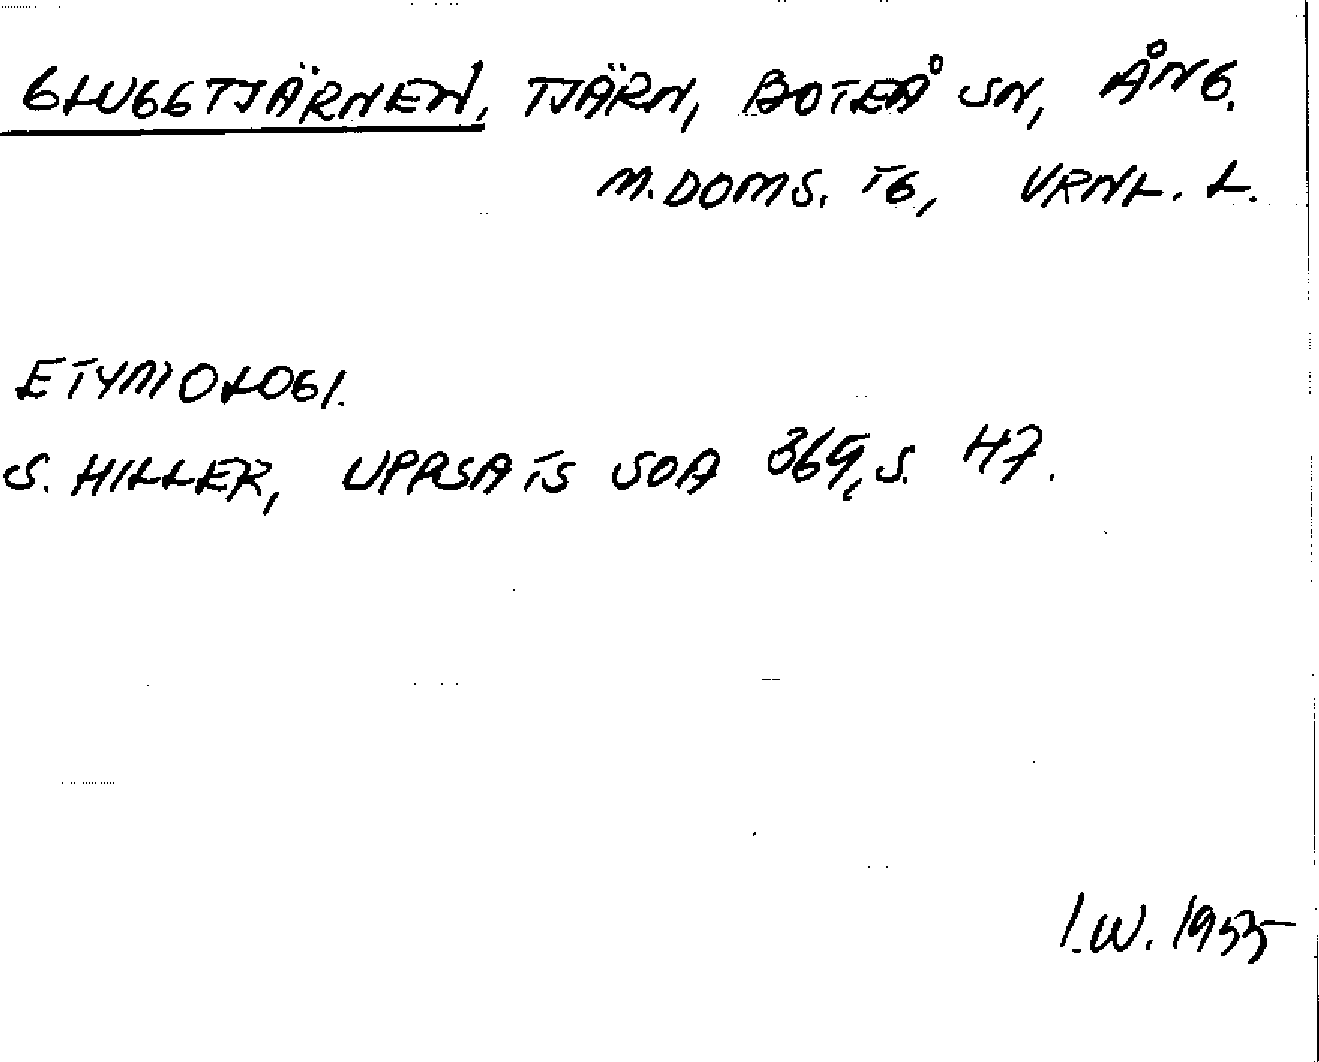 GLUGGTJÄRNEN, TJÄRN, BOTEÅ SN, ÅNG.
M. DOMS. TG, VRNL. L.
ETYMOLOGI.
S. HILLER, UPPSATS SOA 369, S. 47.
I.W. 1955